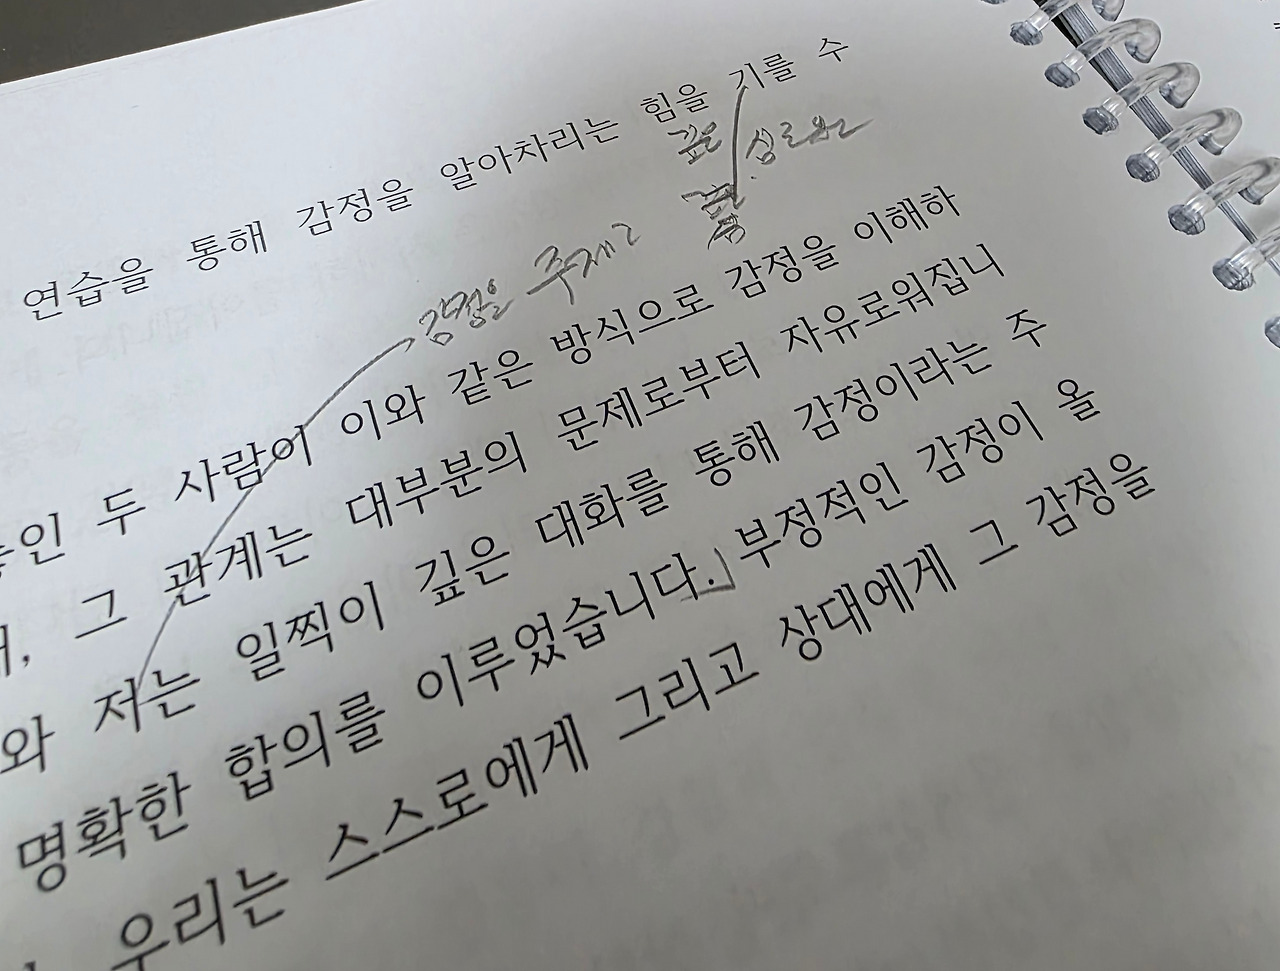 연습을 통해 감정을 알아차리는 힘을 기를 수
깊은
감정을 주제로
인 두 사람이 이와 같은 방식으로 감정을 이해하
그 관계는 대부분의 문제로부터 자유로워집니
와 저는 일찍이 깊은 대화를 통해 감정이라는 주
명확한 합의를 이루었습니다. 부정적인 감정이 올
우리는 스스로에게 그리고 상대에게 그 감정을